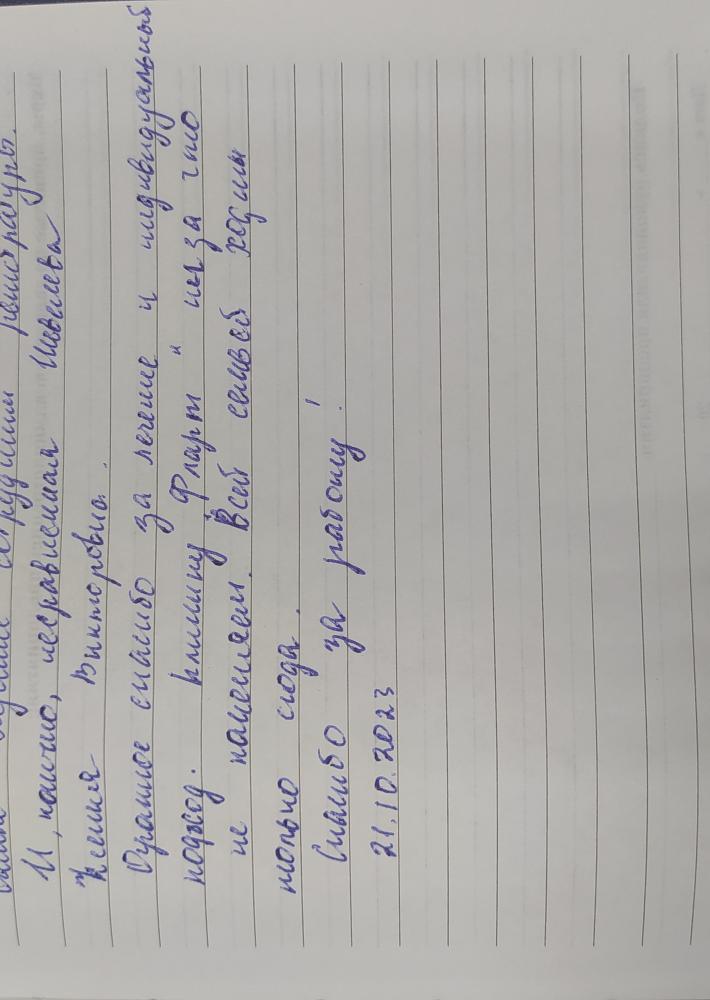 самые лучшие сотрудники регистратуры.
И, конечно, несравненная Шевелева
Ксения Викторовна.
Огромное спасибо за лечение и индивидуальный
подход. Клинику "Фларт" ни за что
не поменяем. Всей семьей ходим
только сюда.
Спасибо за работу!
21.10.2023